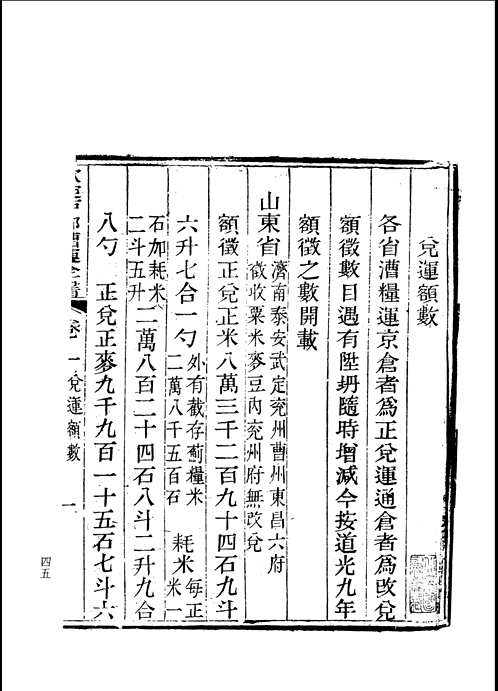 兌運額數
各省漕糧運京倉者爲正兌運通倉者爲改兌
額徵數目遇有陞坍隨時增減今按道光九年
額徵之數開載
山東省濟南泰安武定兗州曹州東昌六府
徵收粟米麥豆內兗州府無改兌
額徵正兌正米八萬三千二百九十四石九斗
六升七合一勺外有截存薊糧米
二萬八千五百石
耗米每正
米一
石加耗米
二斗五升
二萬八百二十四石八斗二升九合
八勺 正兌正麥九千九百一十五石七斗六
卷一 兌運額數 一
四五